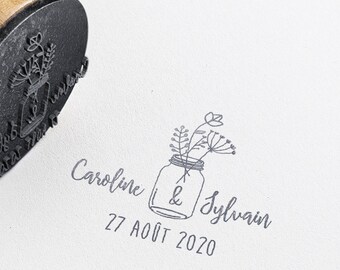 Caroline & Sylvain
27 AOÛT 2020